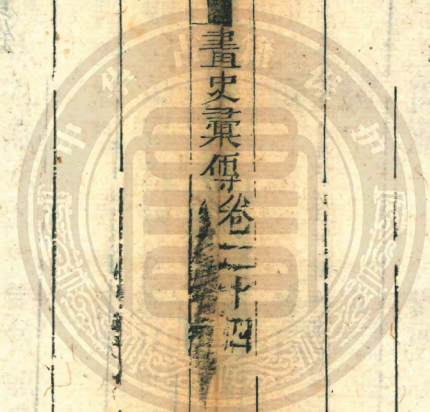 畫史彙傳卷二十四